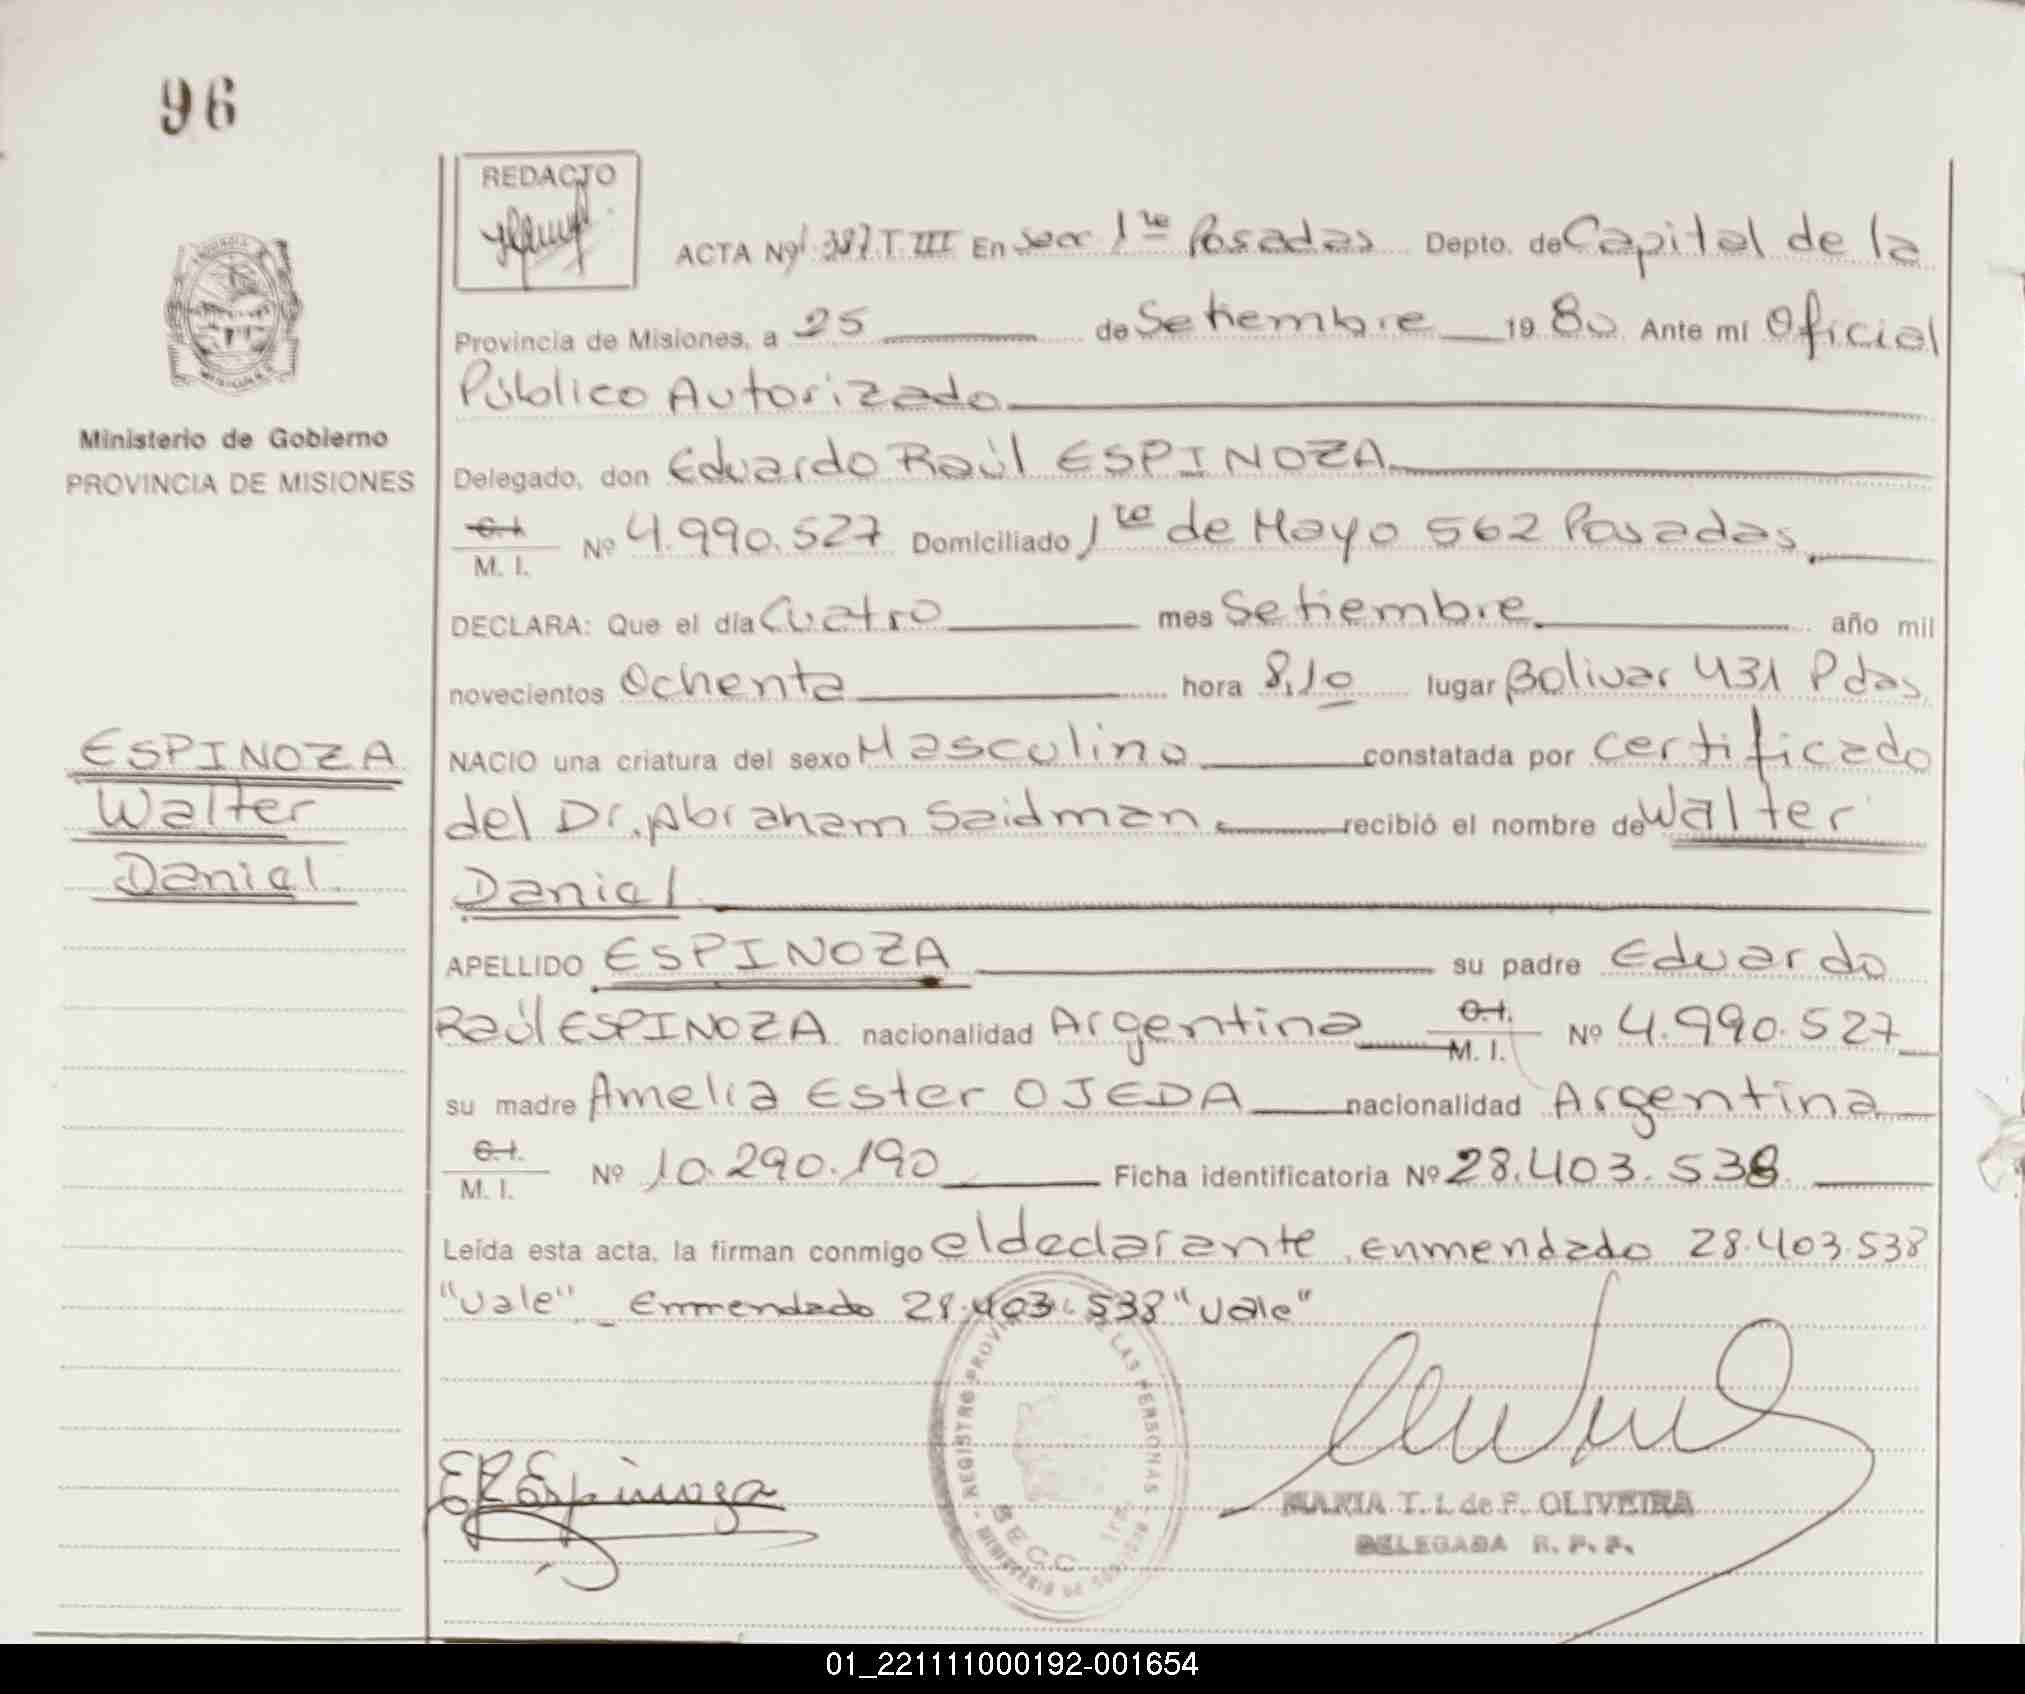 96
REDACTO
ACTA Nº 1.387.T.III En Secc 1ra Posadas Depto. de Capital de la
Provincia de Misiones, a 25 de Setiembre 1980. Ante mí Oficial
Público Autorizado
Ministerio de Gobierno
PROVINCIA DE MISIONES
Delegado, don Eduardo Raúl ESPINOZA
C.I. M. I. Nº 4.990.527 Domiciliado 1ro de Mayo 562 Posadas
DECLARA: Que el día Cuatro mes Setiembre año mil
novecientos Ochenta hora 8,10 lugar Bolivar 431 Pdas,
NACIO una criatura del sexo Masculino constatada por certificado
del Dr. Abraham Saidman recibió el nombre de Walter
Daniel
ESPINOZA
Walter
Daniel
APELLIDO ESPINOZA su padre Eduardo
Raúl ESPINOZA nacionalidad Argentina C.I. M. I. Nº 4.990.527
su madre Amelia Ester OJEDA nacionalidad Argentina
C.I. M. I. Nº 10.290.190 Ficha identificatoria Nº 28.403.538
Leída esta acta, la firman conmigo el declarante, enmendado 28.403.538
"vale" _ Enmendado 28.403.538 "vale"
REGISTRO PROVINCIAL DE LAS PERSONAS
SECC. 1ra.
MINISTERIO DE GOBIERNO
E R Espinoza
MARIA T. I. de F. OLIVEIRA
DELEGADA R. P. P.
01_221111000192-001654